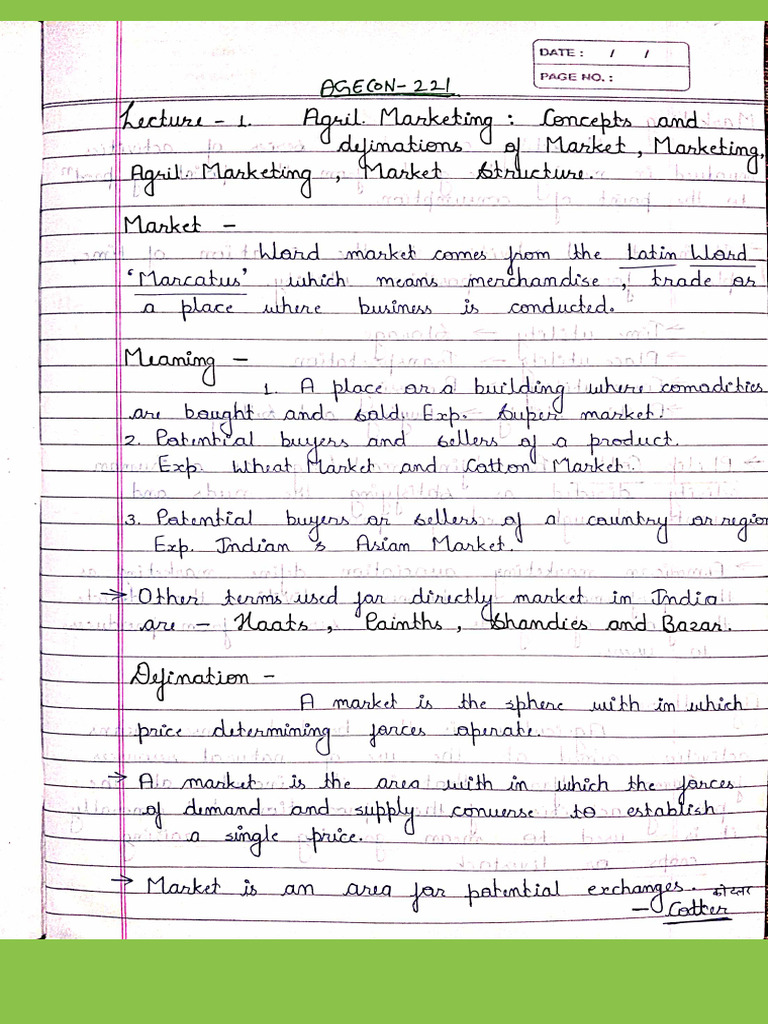 DATE : / /
PAGE NO. :
AGECON-221
Lecture - 1. Agril. Marketing : Concepts and
definations of Market, Marketing,
Agril. Marketing, Market Structure.
Market -
Word market comes from the Latin Word
'Marcatus' which means merchandise, trade or
a place where business is conducted.
Meaning -
1. A place or a building where comodities
are bought and sold Exp. Super market.
2. Potential buyers and sellers of a product.
Exp. Wheat Market and Cotton Market.
3. Potential buyers or sellers of a country or region
Exp. Indian & Asian Market.
→ Other terms used for directly market in India
are - Haats, Painths, Shandies and Bazar.
Defination -
A market is the sphere with in which
price determining forces operate.
→ A market is the area with in which the forces
of demand and supply converse to establish
a single price.
→ Market is an area for potential exchanges. कोटलर
- Cotter